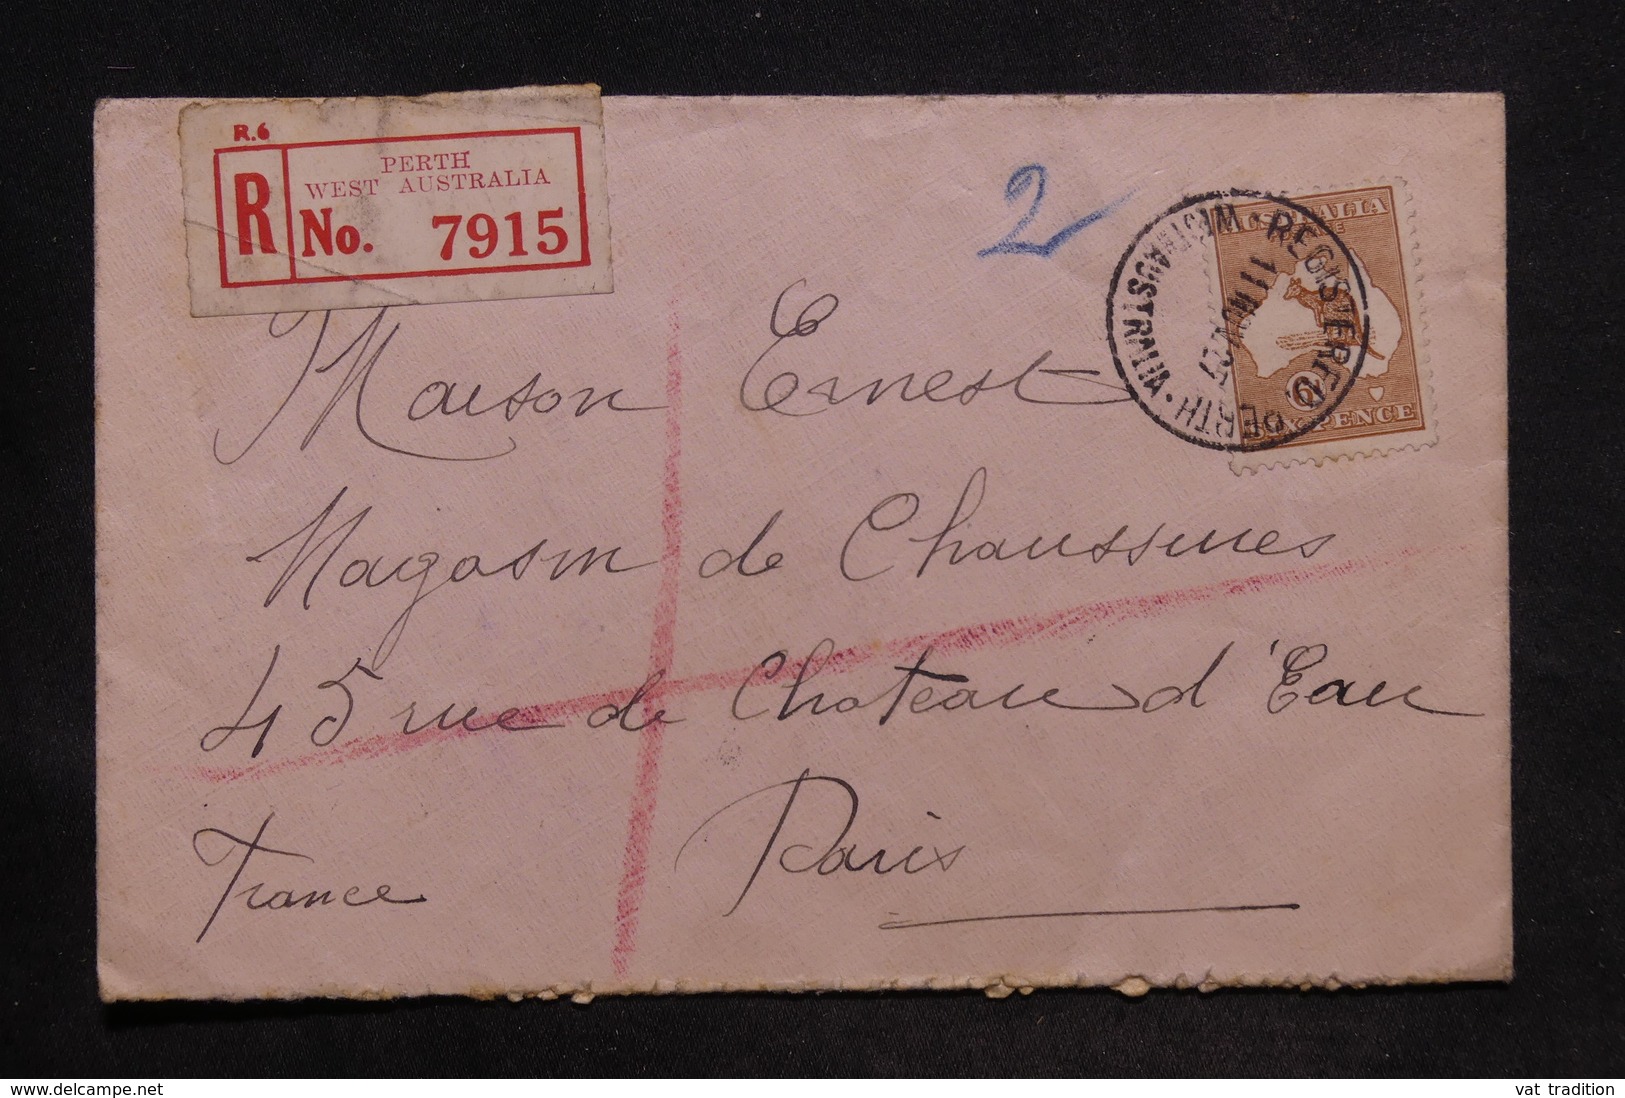 R.6
R
PERTH
WEST AUSTRALIA
No. 7915
2
AUSTRALIA
POSTAGE
6D
SIX PENCE
REGISTERED PERTH · WEST AUSTRALIA ·
11 NOV 27
Maison Ernest
Magasin de Chaussures
45 rue de Chateau d'Eau
Paris
France
www.delcampe.net
vat tradition